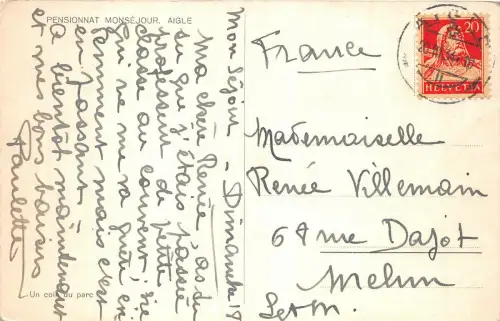 PENSIONNAT MONSÉJOUR. AIGLE
Mon Séjour, Dimanche 18
Ma chère Renée, as-tu
su que j'étais passée
professeur de petite
classe au couvent; vie
qui ne me va guère en-
en passant
A bientôt maintenant
et mes bons baisers
Paulette
Un coin du parc
AIGLE
20
HELVETIA
France
Mademoiselle
Renée Villemain
68 rue Dajot
Melun